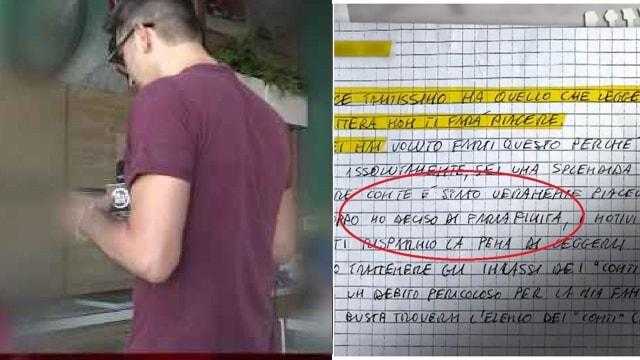 CE TANTISSIMO MA QUELLO CHE LEGGE
TTERA NON TI FARÀ PIACERE.
EI MAI VOLUTO FARTI QUESTO PERCHÈ
ASSOLUTAMENTE, SEI UNA SPLENDIDA
RE CON TE È STATO VERAMENTE PIACE
HO DECISO DI FARLA FINITA, MOTIV
TI RISPARMIO LA PENA DI LEGGERLI
O TRATTENERE GLI INCASSI DEI "CONTI
UN DEBITO PERICOLOSO PER LA MIA FAM
BUSTA TROVERAI L'ELENCO DEI "CONTI" C